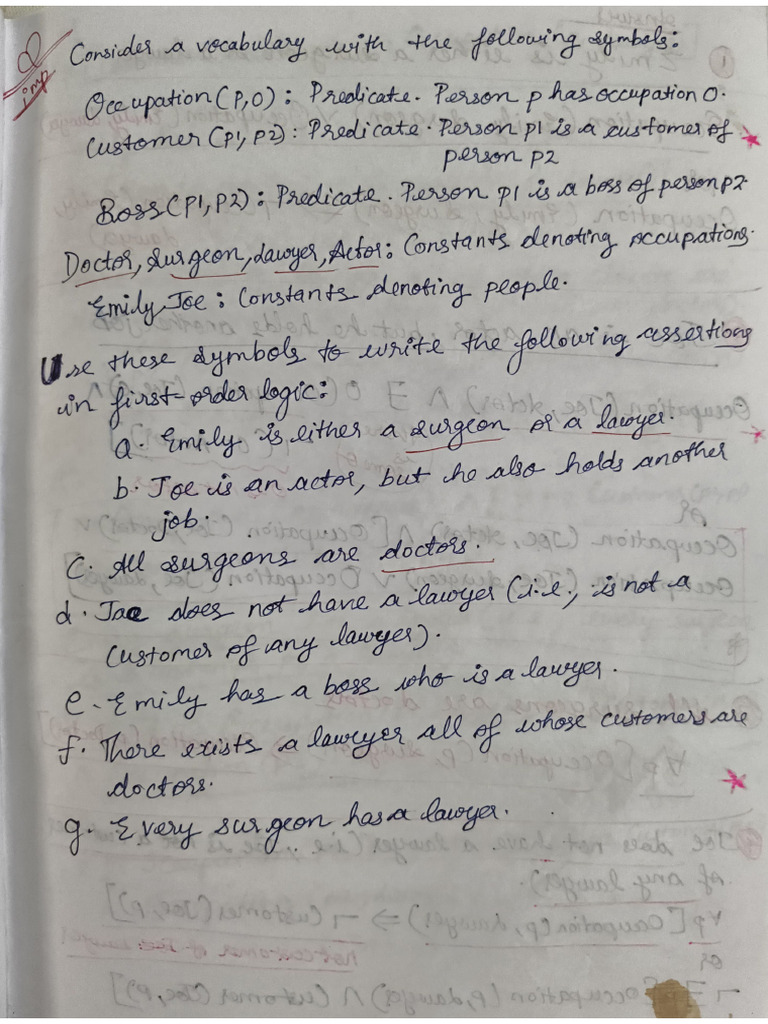 Q
imp
Consider a vocabulary with the following symbols:
Occupation(P,O): Predicate. Person p has occupation O.
Customer (P1, P2): Predicate. Person p1 is a customer of
person p2
Boss(P1, P2): Predicate. Person p1 is a boss of person p2.
Doctor, Surgeon, Lawyer, Actor: Constants denoting occupations.
Emily, Joe: Constants denoting people.
Use these symbols to write the following assertions
in first-order logic:
a. Emily is either a surgeon or a lawyer.
b. Joe is an actor, but he also holds another
job.
C. All surgeons are doctors.
d. Joe does not have a lawyer (i.e., is not a
customer of any lawyer).
e. Emily has a boss who is a lawyer.
f. There exists a lawyer all of whose customers are
doctors.
g. Every surgeon has a lawyer.